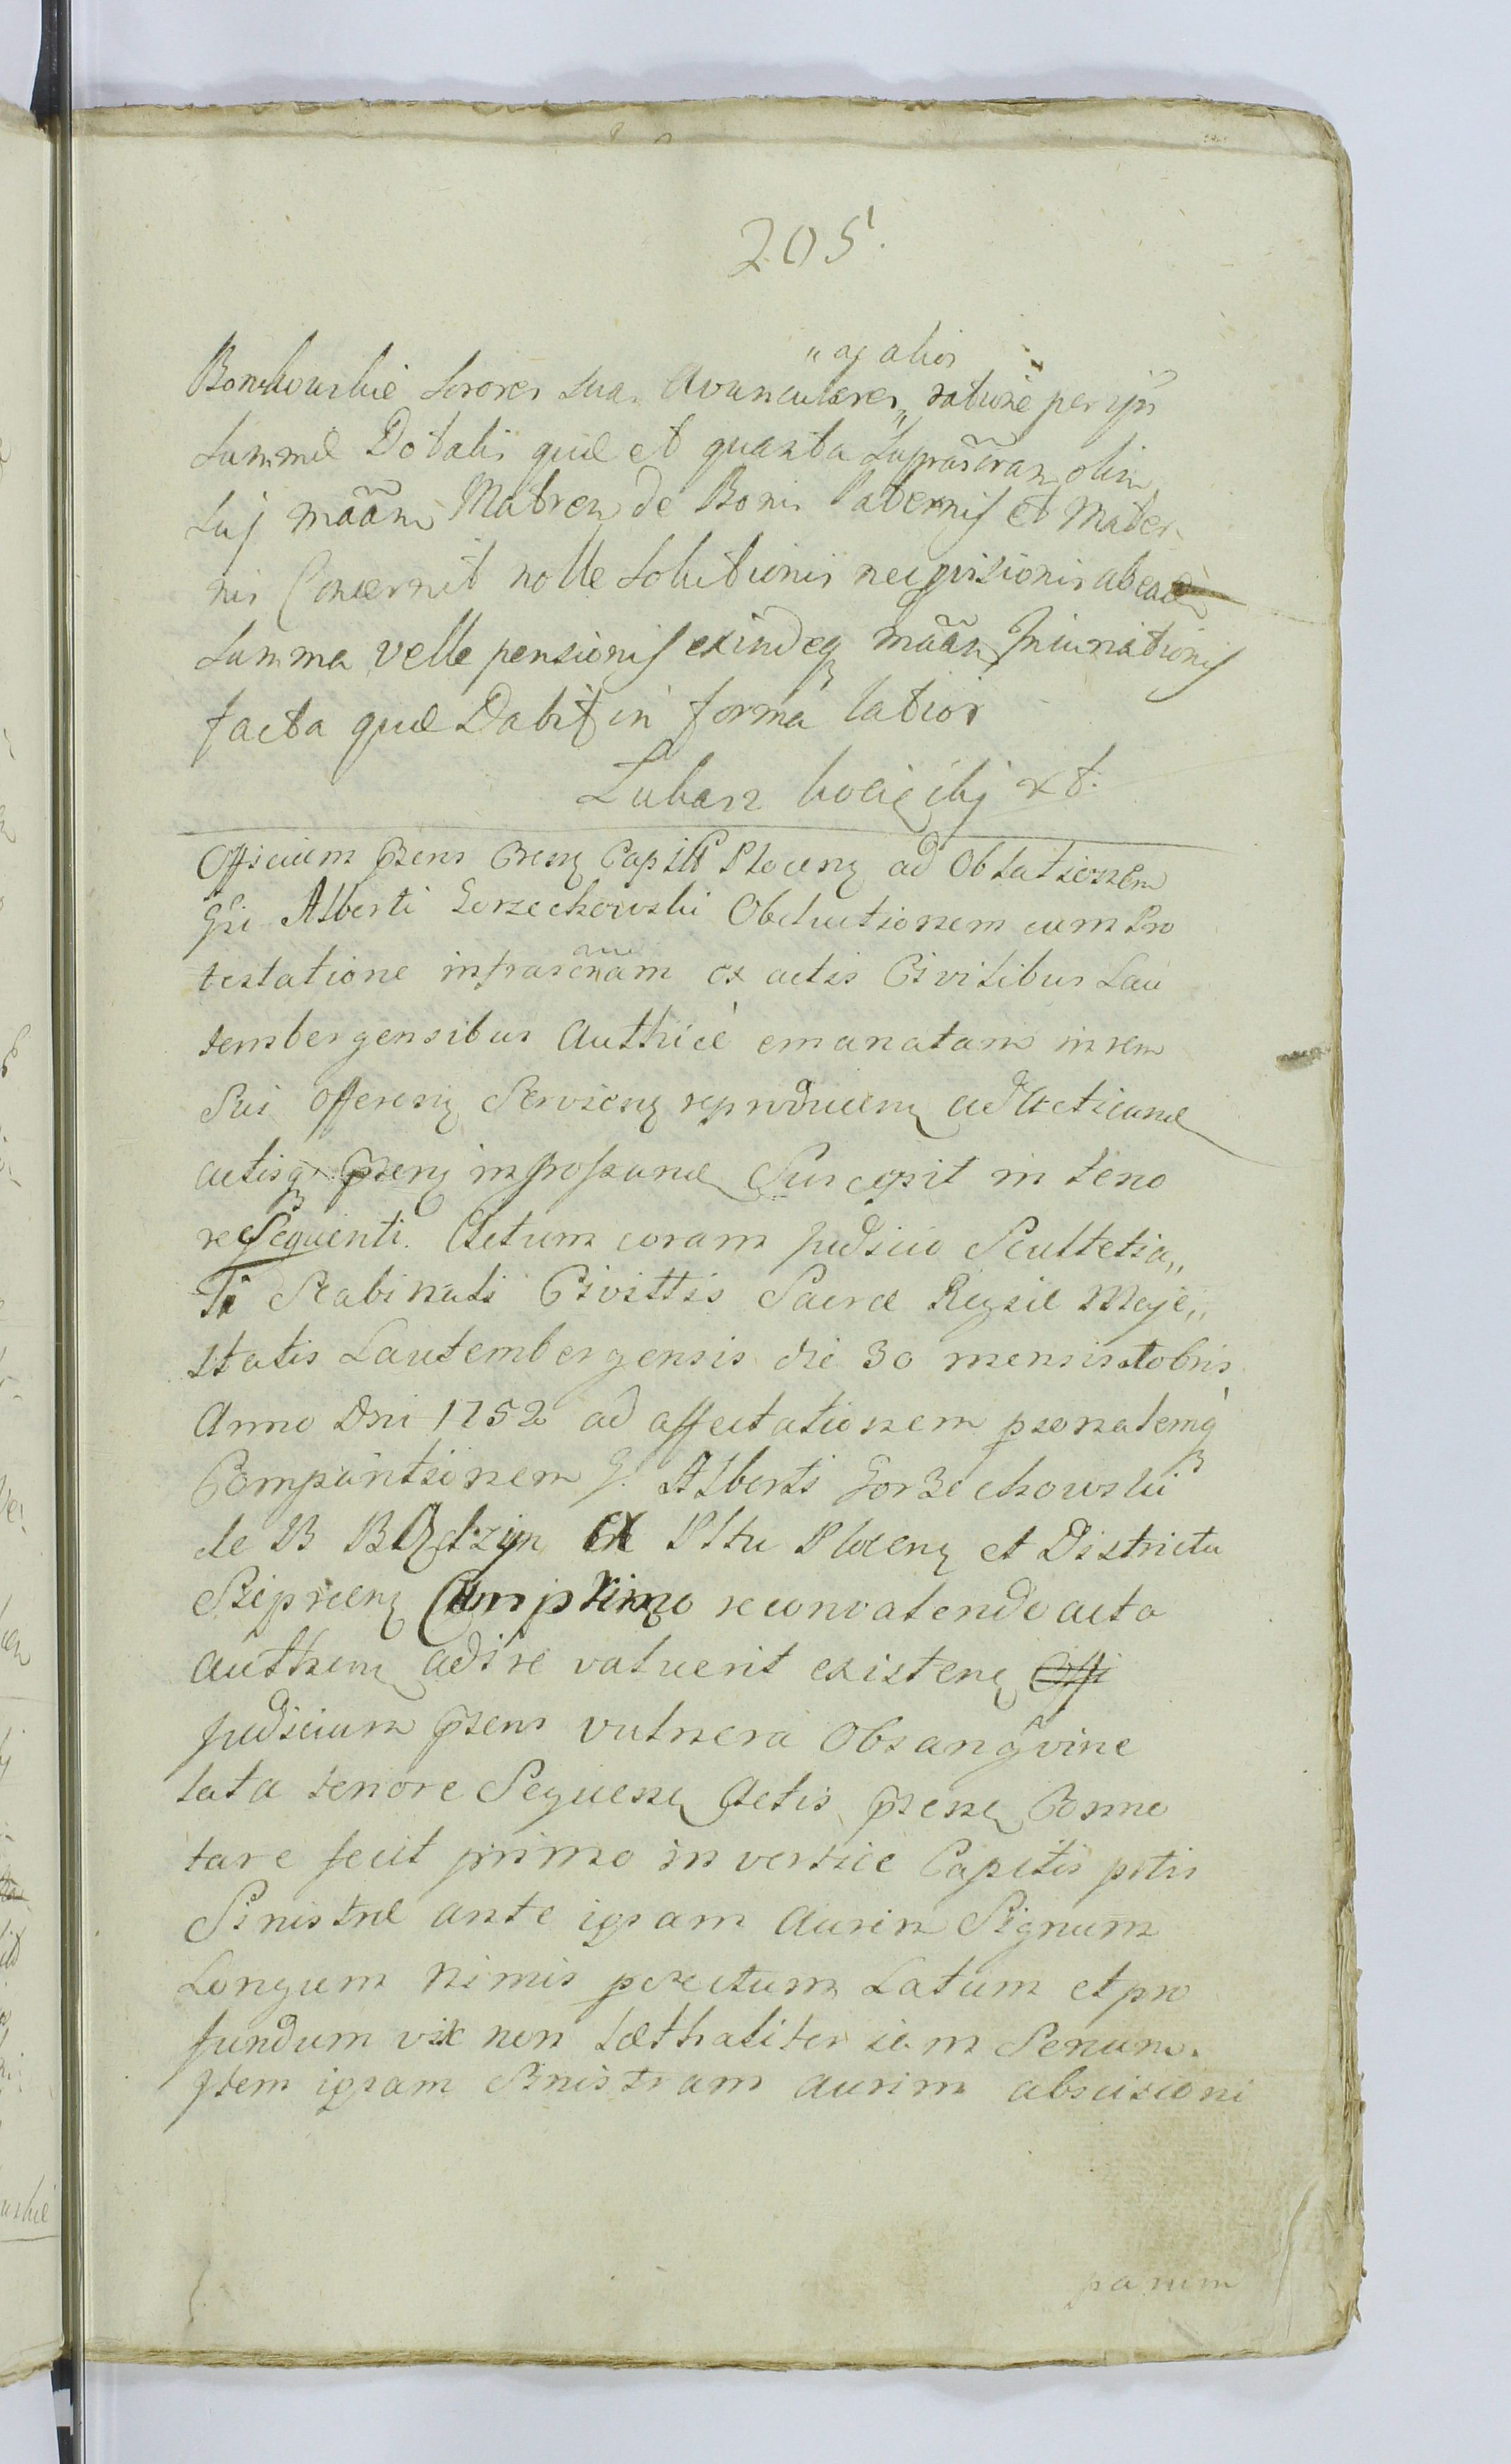 205.
"aj alios
Bonkowskie Sorores suas Avunculares" ratione perijs
Summae Dotalis quae et quanta Suprascram olim
suj mããm Matrem de Bonis Paternis et Mater
nis Concernit nolle Solutionis neqvisionis ab ead
Summa velle pensionis exindeq mããm Iniunctionis
facta quae Dabit in forma latior
Lukasz kocięcki xt.
Officium prens Crens Capitl Plocens ad Oblationem
Gsi Alberti Gorzechowski Obductionem cum Pro
testatione infrascrnam ex actis Civilibus Lau
tembergensibus Authice emanatam in rem
Sui offerens Serviens reproducens ad Acticand
actisq prens ingrossand Suscepit in teno
re Sequenti. Actum coram Judicio Scultetia,,
Ti Scabinali Civittis Sacrae Regiae Maje,,
statis Lautembergensis die 30 mensis xtobris
Anno Dni 1752 ad affectationem psonalemq
Compantionem G. Alberti Gorzechowski
de B Bądzyn Ex Pltu Plocens et Districtu
Sieprcens Cum primo reconvalendo acta
authen adire valuerit existens Offi
Judicium prens vulnera Obsangvine
lata tenore Sequens Actis prens Conno
tare fecit primo in vertice Capitis prtis
Sinistrae ante ipsam aurim Signum
Longum nimis persectum Latum et pro
fundum vix non laethaliter iam Senum.
Item ipsam Sinistram aurim abscisioni
parum